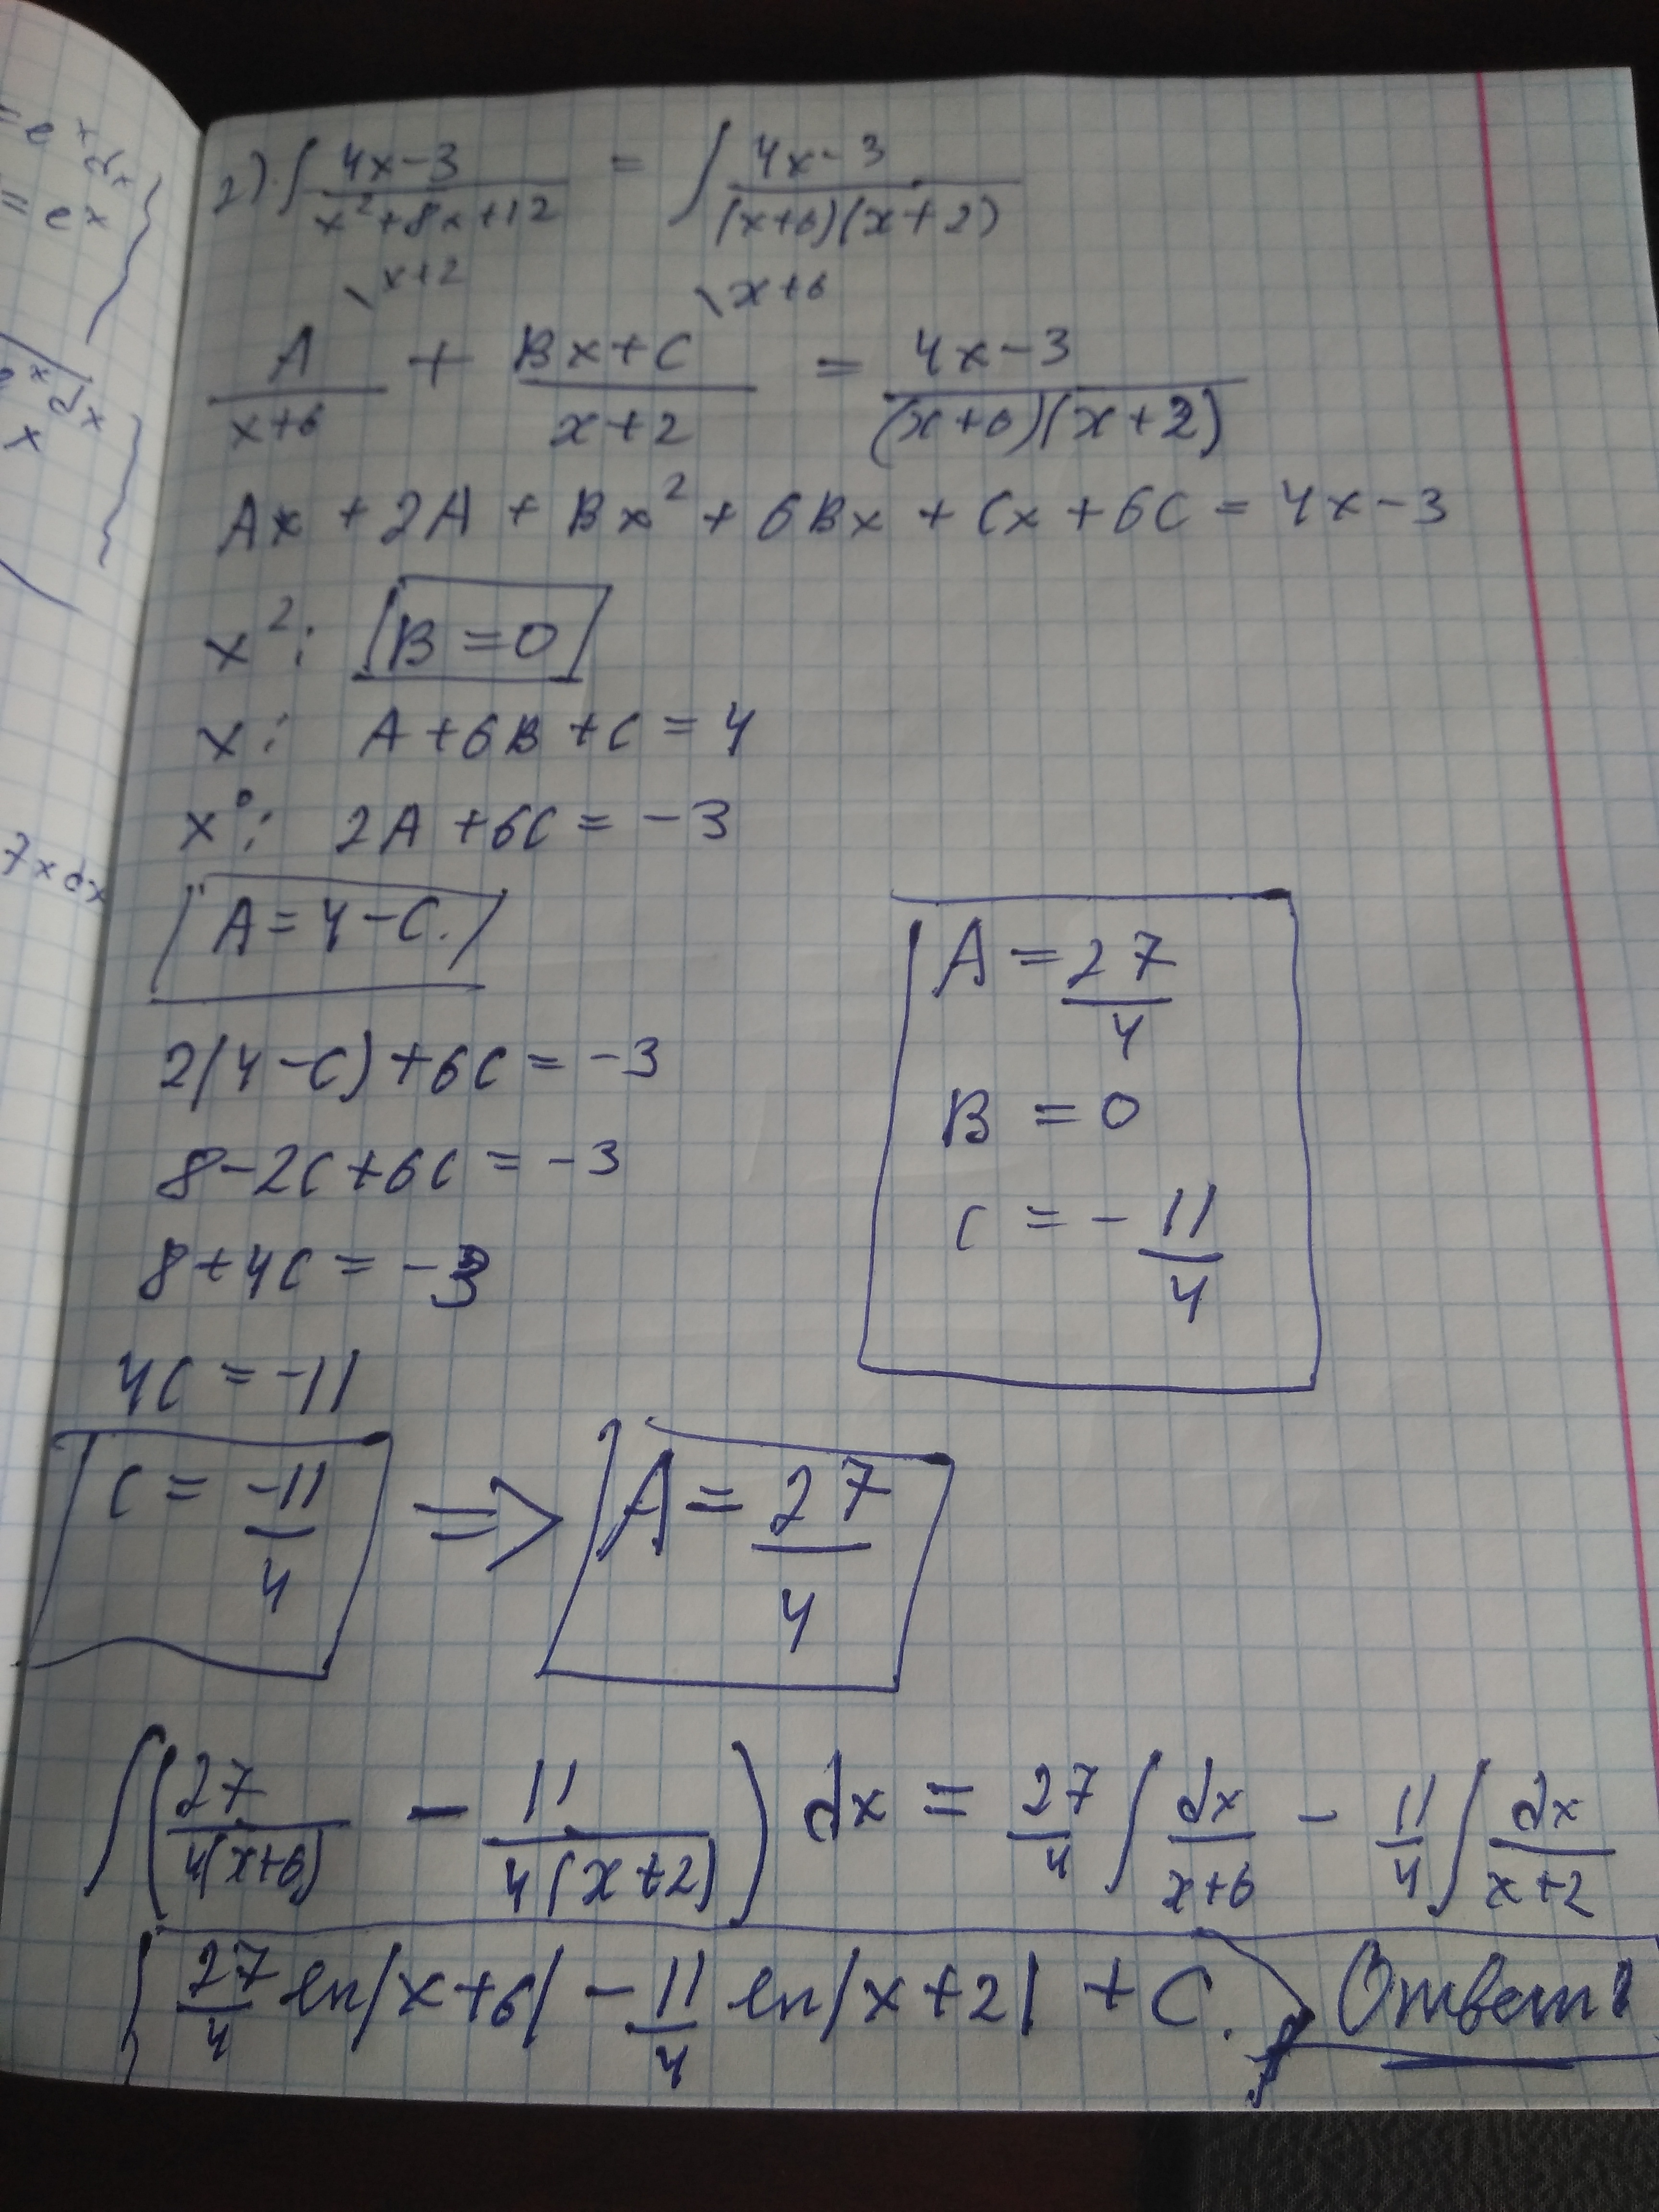 = e^x dx
= e^x
e^x dx
x
7x dx
2) ∫ (4x-3)/(x²+8x+12) = ∫ (4x-3)/((x+6)(x+2))
\x+2 \x+6
A/(x+6) + (Bx+C)/(x+2) = (4x-3)/((x+6)(x+2))
Ax + 2A + Bx² + 6Bx + Cx + 6C = 4x-3
x²: B = 0
x: A + 6B + C = 4
x⁰: 2A + 6C = -3
A = 4 - C.
2(4-C) + 6C = -3
8 - 2C + 6C = -3
8 + 4C = -3
4C = -11
C = -11/4 => A = 27/4
A = 27/4
B = 0
C = - 11/4
∫ (27/(4(x+6)) - 11/(4(x+2))) dx = 27/4 ∫ dx/(x+6) - 11/4 ∫ dx/(x+2)
27/4 ln|x+6| - 11/4 ln|x+2| + C. Ответ